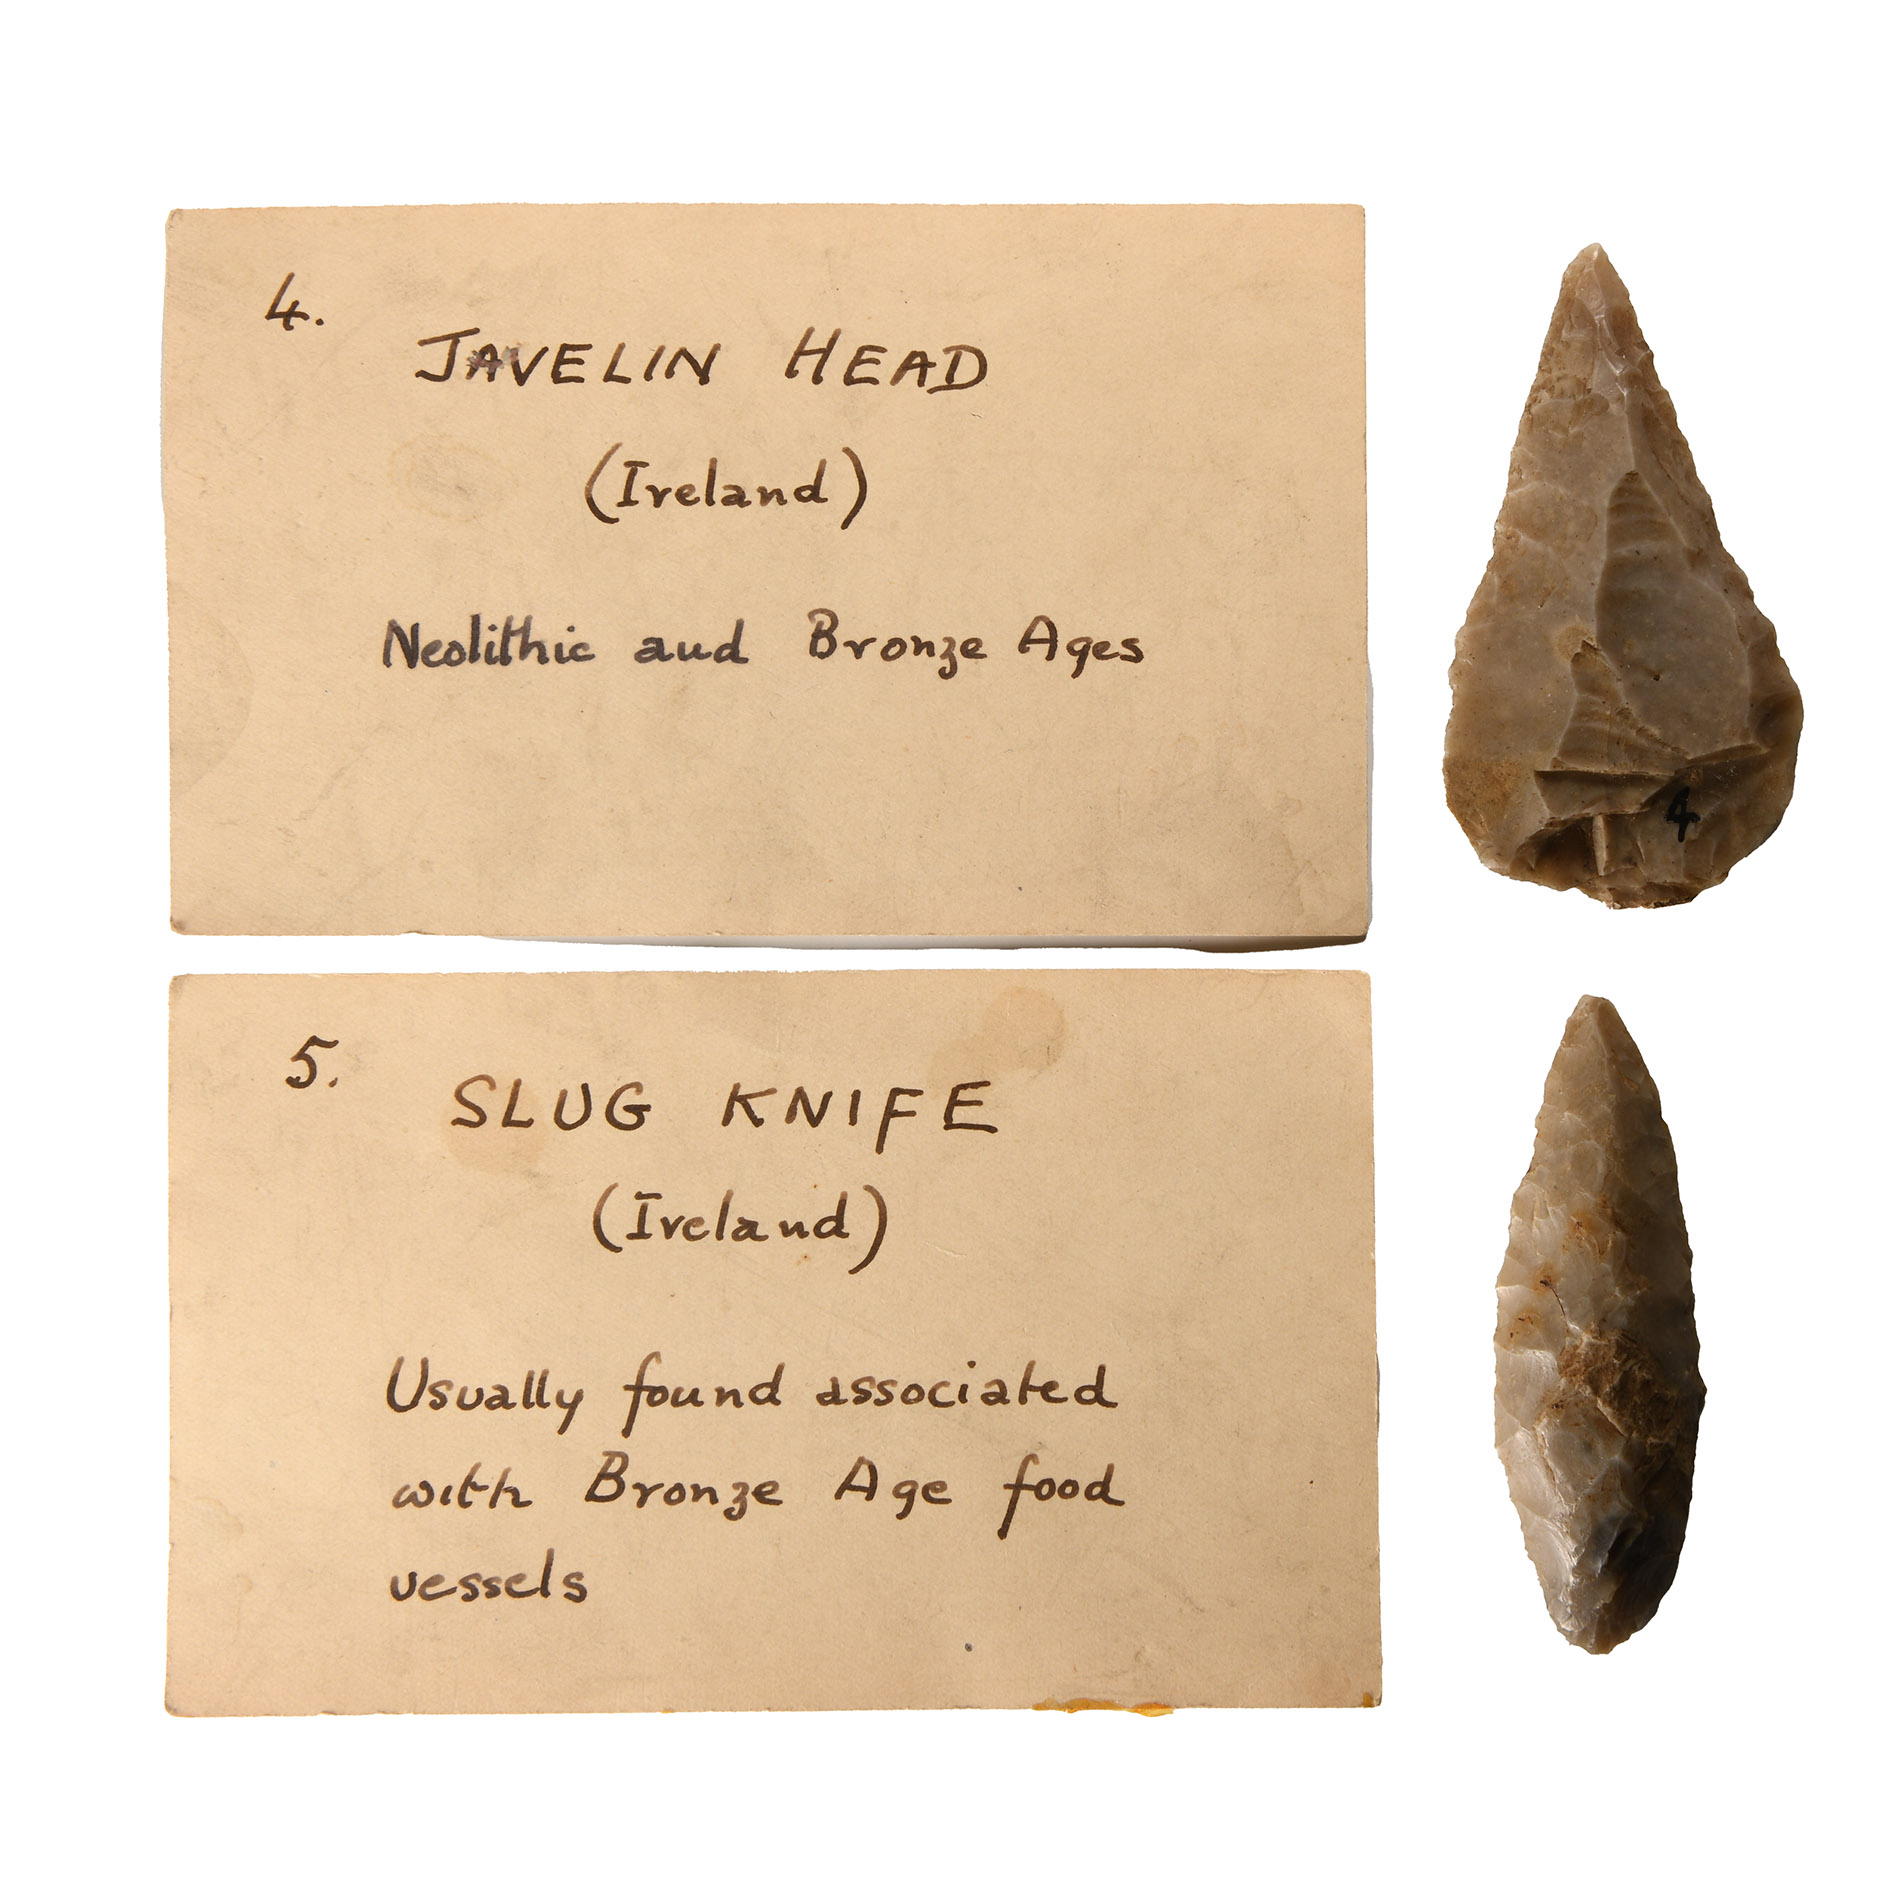 4.
JAVELIN HEAD
(Ireland)
Neolithic and Bronze Ages
4
5.
SLUG KNIFE
(Ireland)
Usually found associated
with Bronze Age food
vessels